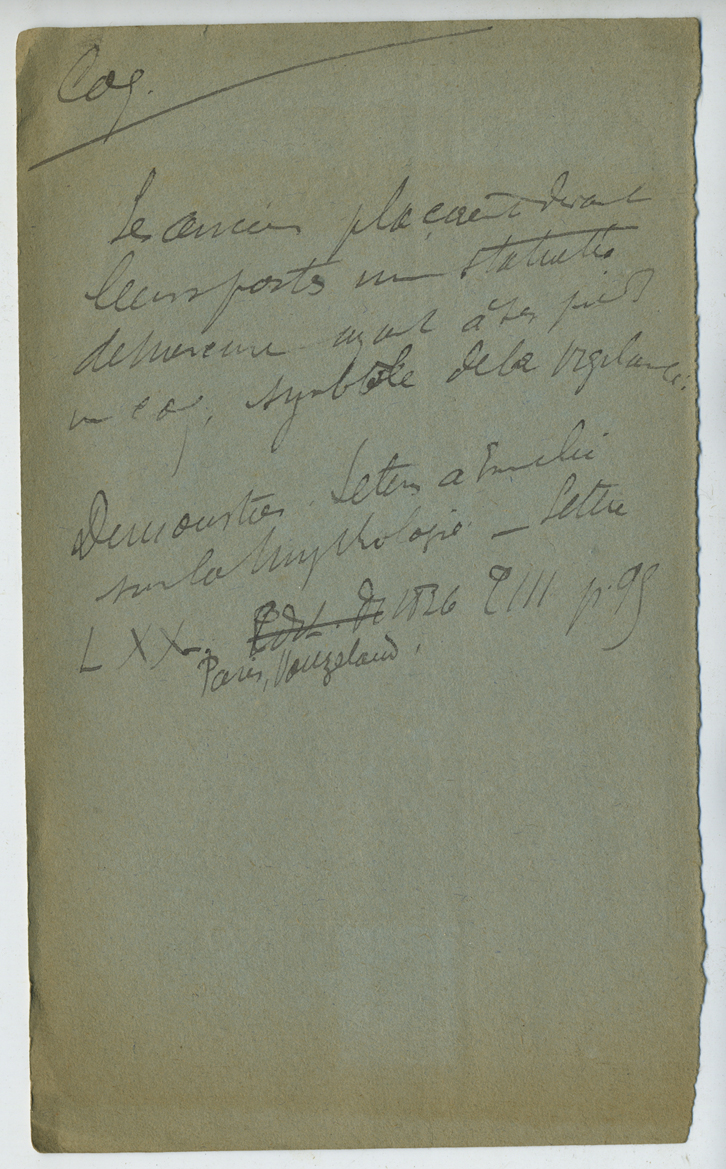 Coq.
Les anciens plaçaient devant
leurs portes une statuette
de Mercure ayant à ses pieds
un coq, symbole de la vigilance.
Demoustier. Lettres à Emilie
sur la Mythologie. — Lettre
LXX. Edit. de 1826 T III p. 95
Paris,